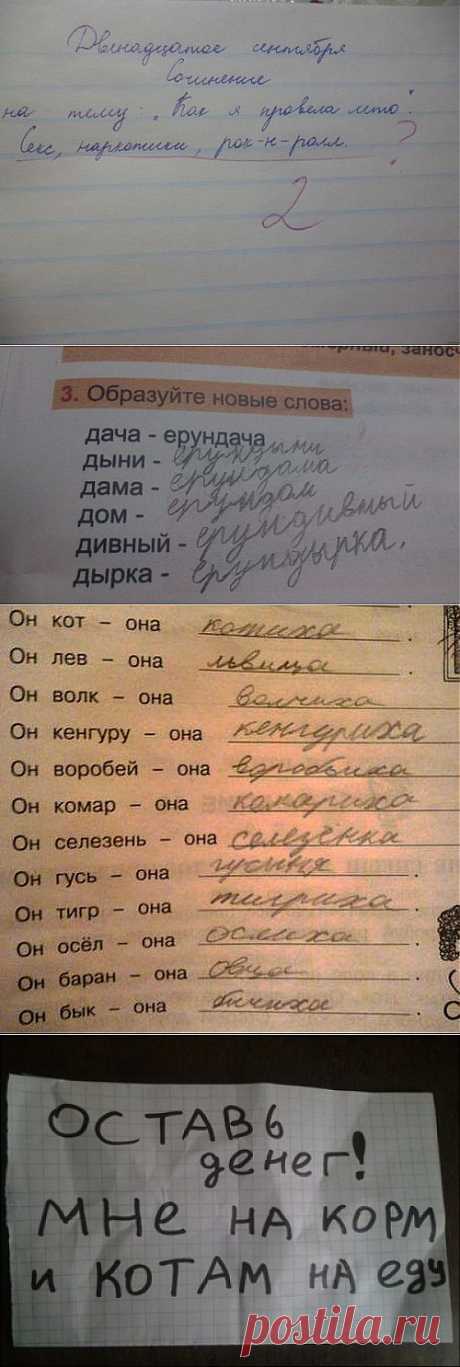 Двенадцатое сентября
Сочинение
на тему: „Как я провела лето".
Секс, наркотики, рок-н-ролл. ?
2
заносч
3. Образуйте новые слова:
дача - ерундача
дыни - ерундыни
дама - ерундама
дом - ерундом
дивный - ерундивный
дырка - ерундырка.
Он кот – она котиха.
Он лев – она львица.
Он волк – она волчиха
Он кенгуру – она кенгуриха
Он воробей – она воробьиха
Он комар – она комариха
Он селезень – она селезёнка
Он гусь – она гусыня.
Он тигр – она тигриха.
Он осёл – она ослиха.
Он баран – она овца.
Он бык – она бычиха.
ОСТАВЬ
денег!
МНе НА КОРМ
и КОТАМ НА еду
postila.ru